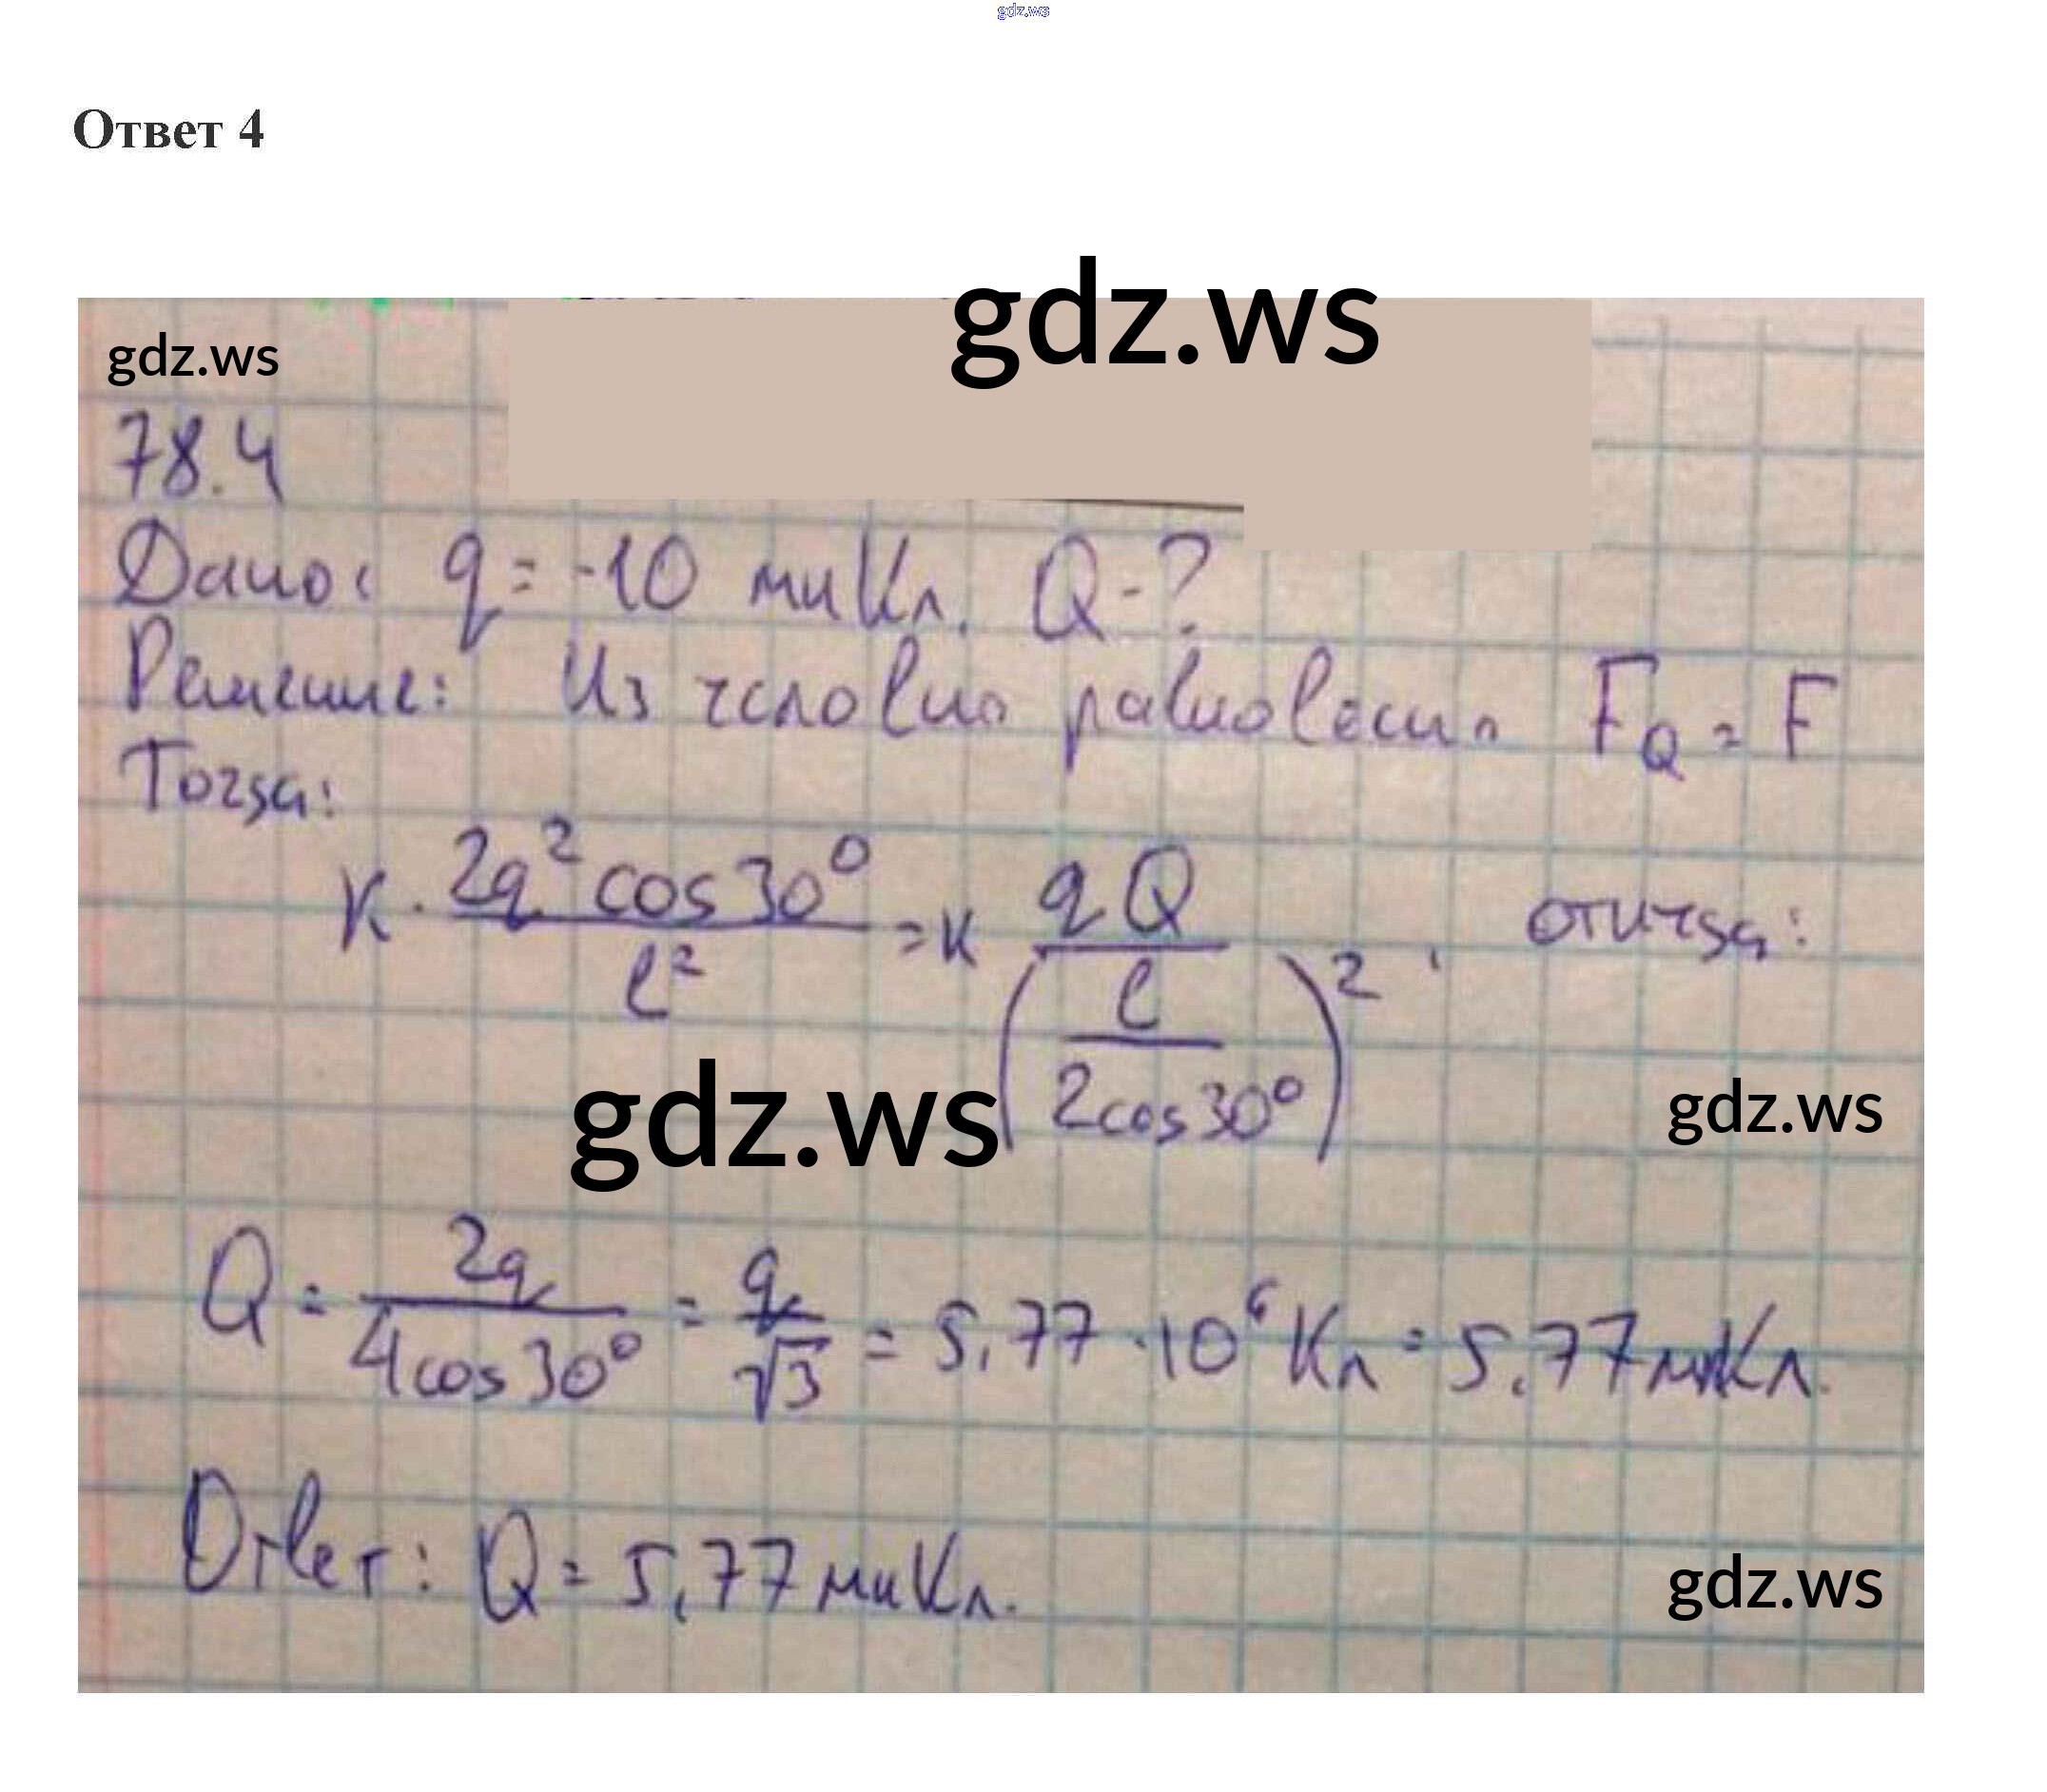 gdz.ws
Ответ 4
gdz.ws
gdz.ws
78.4
Дано: q = -10 мкКл. Q - ?
Решение: Из условия равновесия F_Q = F
Тогда:
K · 2q² cos 30° / l² = K qQ / (l / 2cos 30°)², откуда:
gdz.ws
gdz.ws
Q = 2q / 4cos 30° = q / √3 = 5,77 · 10⁶ Кл = 5,77 мкКл.
Ответ: Q = 5,77 мкКл.
gdz.ws